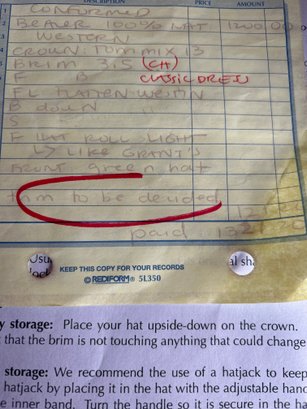 DESCRIPTION PRICE AMOUNT
CONFORMED
BEAVER 100% NAT 1200 00
WESTERN
CROWN: TOM MIX 13
BRIM 3.5 (CH)
F B CLASSIC DRESS
FLATTEN
B down
S
F FLAT ROLL LIGHT
↳ LIKE GRANT'S
green hat
trim to be decided
paid
KEEP THIS COPY FOR YOUR RECORDS
© REDIFORM® 5L350
y storage: Place your hat upside-down on the crown.
that the brim is not touching anything that could change
storage: We recommend the use of a hatjack to keep
hatjack by placing it in the hat with the adjustable hand
e inner band. Turn the handle so it is secure in the ha